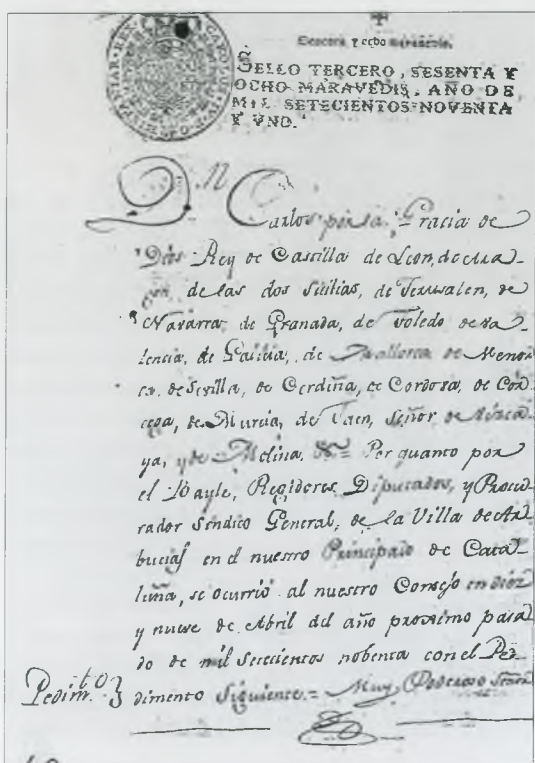 Sesenta y ocho maravedis.
SELLO TERCERO, SESENTA Y
OCHO MARAVEDIS, AÑO DE
MIL SETECIENTOS NOVENTA
Y VNO.
Dn Carlos por la Gracia de
Dios Rey de Castilla de Leon, de Ara-
gon de las dos Sicilias, de Jerusalen, de
Navarra, de Granada, de Toledo de Va-
lencia, de Galicia, de Mallorca de Menor-
ca, de Sevilla, de Cerdeña, de Cordova, de Cor-
cega, de Murcia, de Jaen, Señor de Vizca-
ya, y de Molina. &c.= Por quanto por
el Bayle, Regidores, Diputados, y Procu-
rador Sindico General, de la Villa de Ar-
bucias en el nuestro Principado de Cata-
luña, se ocurrió al nuestro Consejo en diez
y nueve de Abril del año proximo pasa-
do de mil setecientos nobenta con el Pe-
Pedimto. } dimento Siguiente.= Muy Poderoso Señor